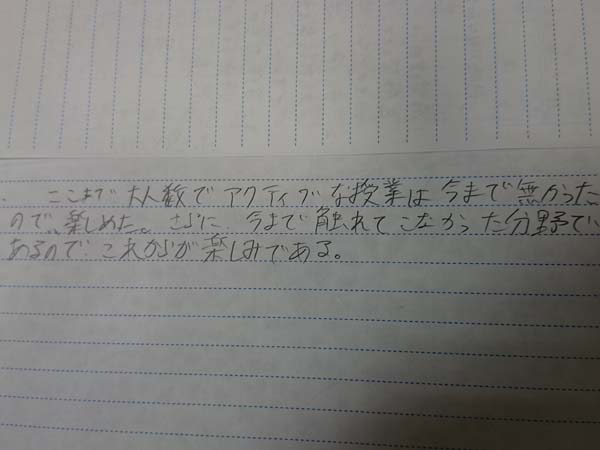 ここまで大人数でアクティブな授業は今まで無かった
ので、楽しめた。さらに、今まで触れてこなかった分野で
あるので、これからが楽しみである。